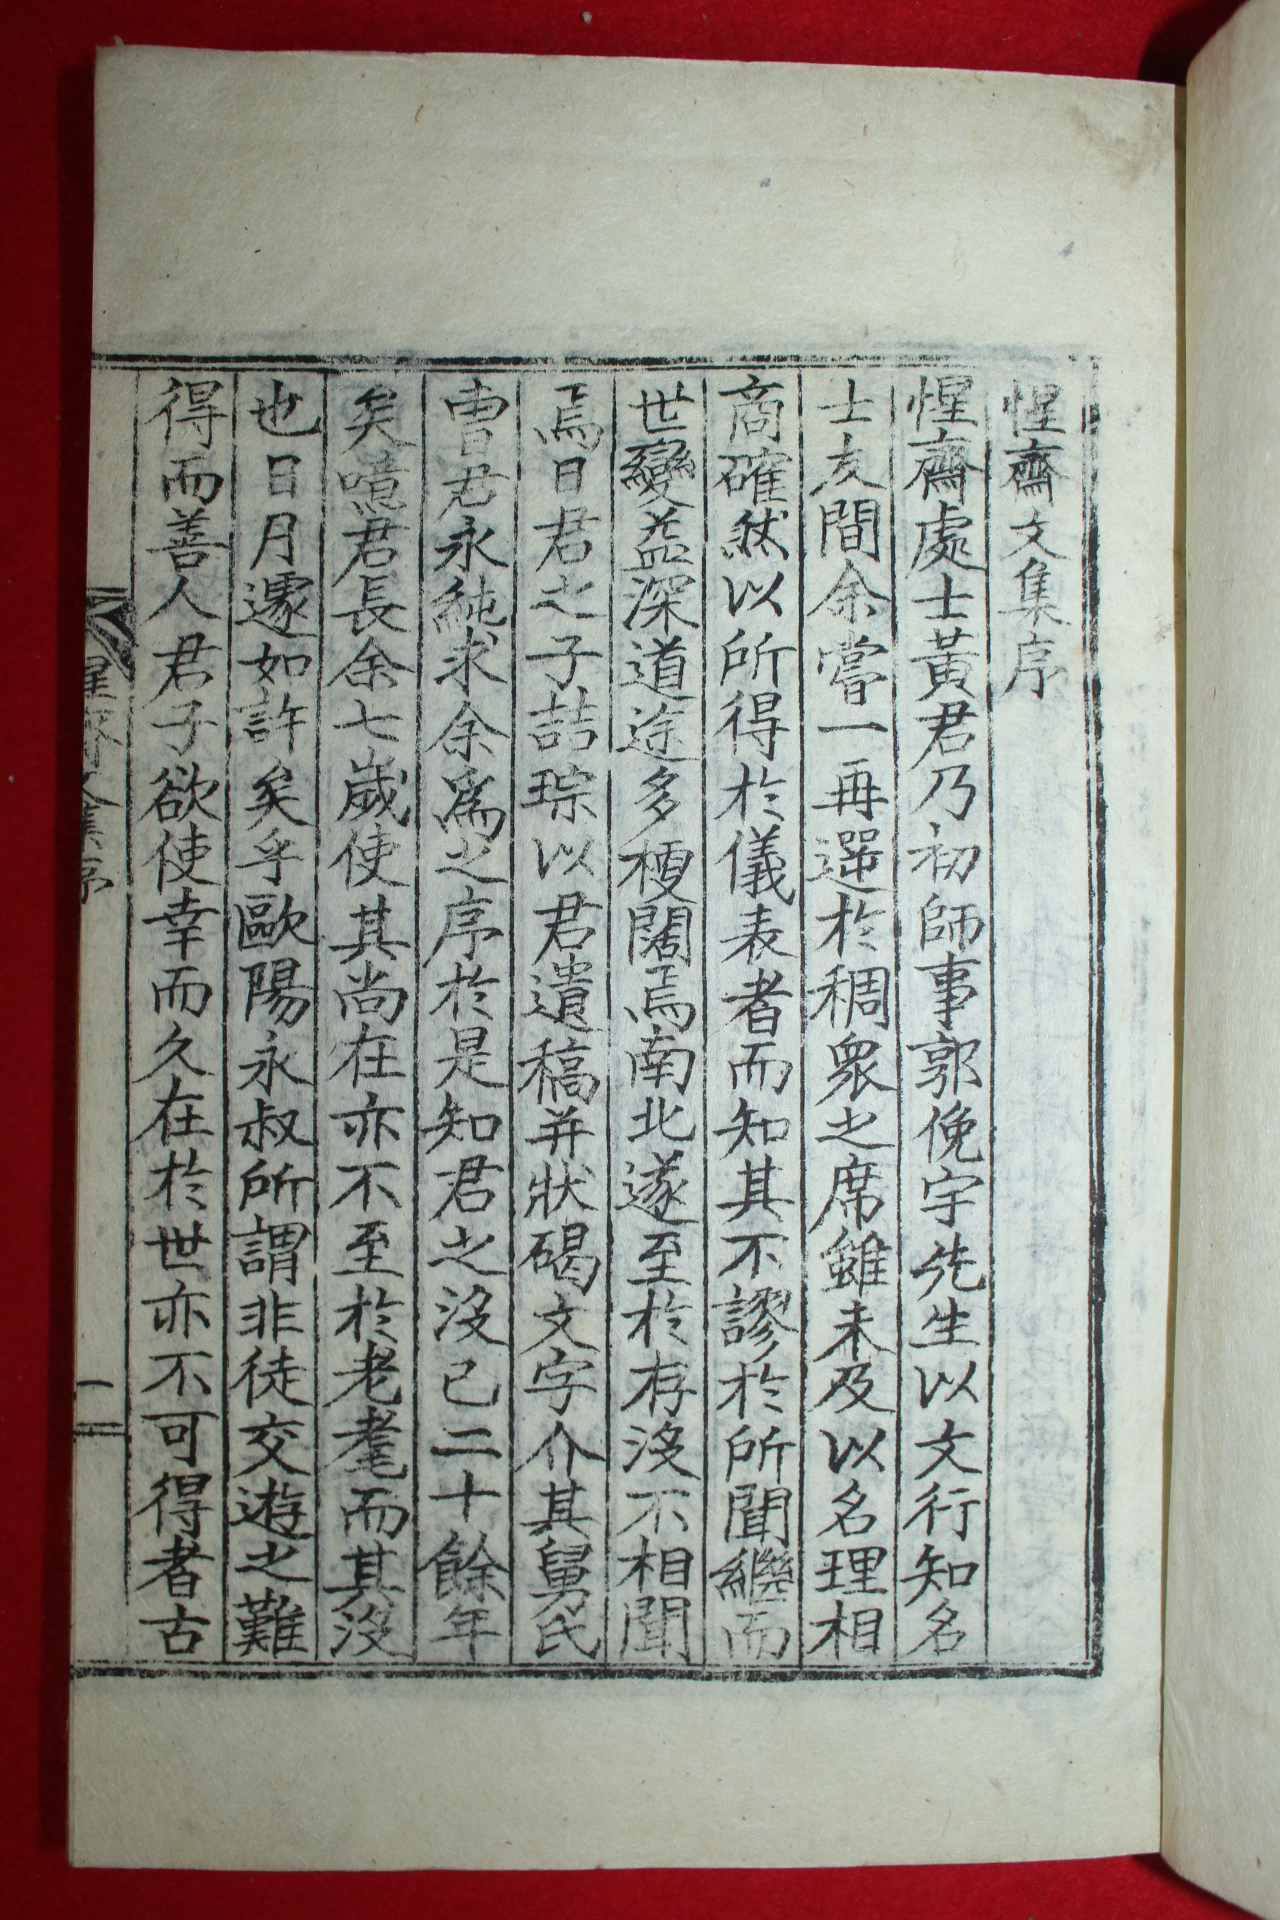 惺齋文集序
惺齋處士黃君乃初師事郭俛宇先生以文行知名
士友間余嘗一再選於稠衆之席雖未及以名理相
商確然以所得於儀表者而知其不謬於所聞繼而
世變益深道途多梗闊焉南北遂至於存沒不相聞
焉日君之子喆琮以君遺稿并狀碣文字介其舅氏
曺君永純求余爲之序於是知君之沒已二十餘年
矣噫君長余七歲使其尚在亦不至於老耄而其沒
也日月遽如許矣乎歐陽永叔所謂非徒交遊之難
得而善人君子欲使幸而久在於世亦不可得者古
惺齋文集序
一